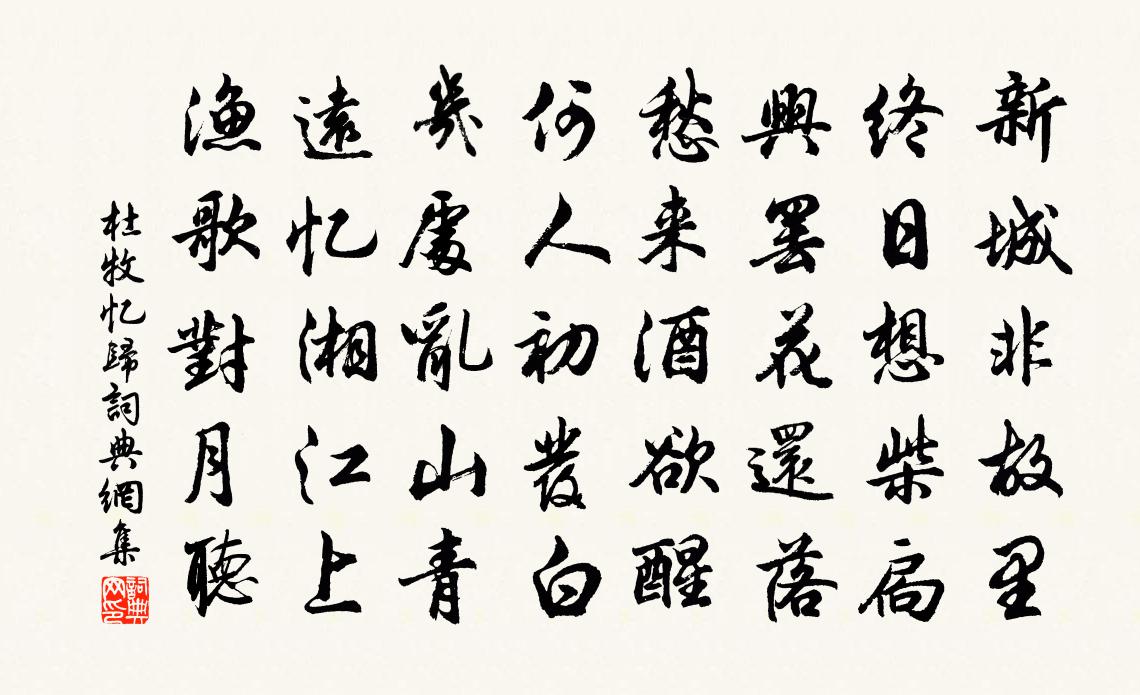 新城非故里
終日想柴扃
興罷花還落
愁来酒欲醒
何人初發白
幾處亂山青
遠忆湘江上
漁歌對月聽
杜牧忆歸詞典網集
詞典網印